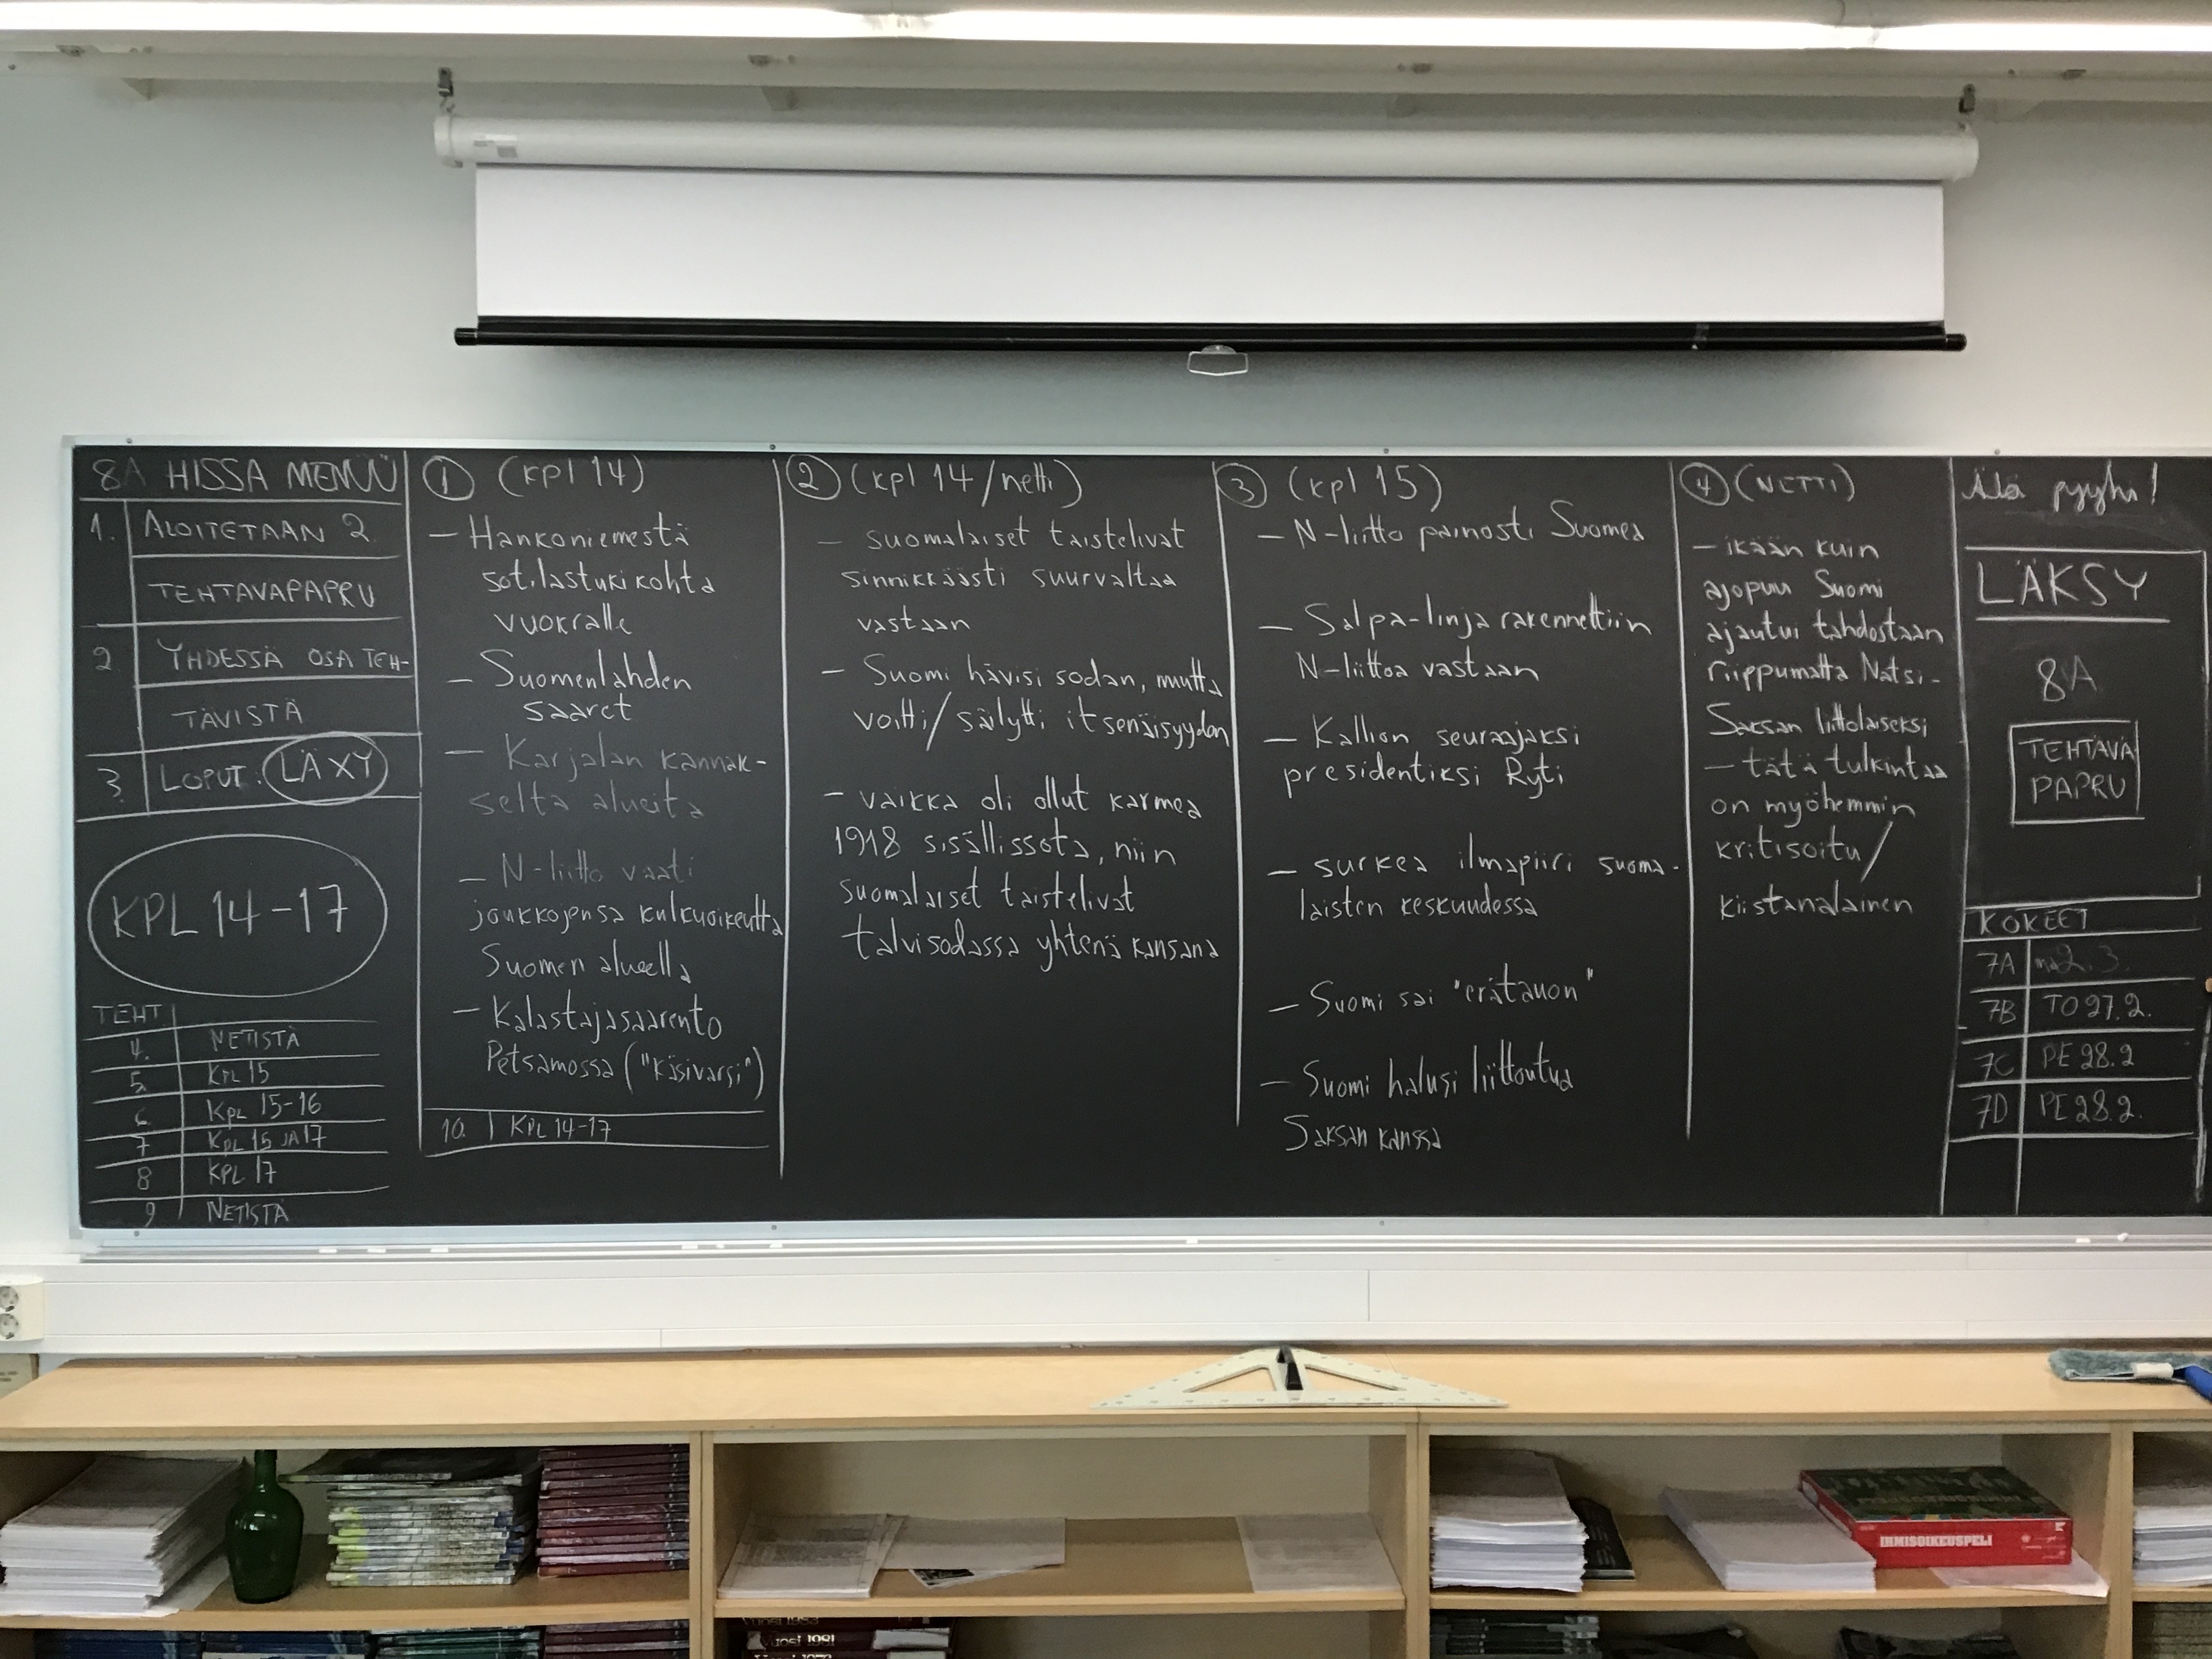 8A HISSA MENÜÜ
1. ALOITETAAN 2.
TEHTÄVÄPAPRU
2. YHDESSÄ OSA TEH-
TÄVISTÄ
3. LOPUT: LÄXY
KPL 14-17
TEHT
4. NETISTÄ
5. KPL 15
6. KPL 15-16
7 KPL 15 JA 17
8 KPL 17
9 NETISTÄ
① (kpl 14)
- Hankoniemestä
sotilastukikohta
vuokralle
- Suomenlahden
saaret
- Karjalan kannak-
selta alueita
- N-liitto vaati
joukkojensa kulkuoikeutta
Suomen alueella
- Kalastajasaarento
Petsamossa ("käsivarsi")
10. KPL 14-17
② (kpl 14/netti)
- suomalaiset taistelivat
sinnikkäästi suurvaltaa
vastaan
- Suomi hävisi sodan, mutta
voitti/säilytti itsenäisyyden
- vaikka oli ollut karmea
1918 sisällissota, niin
suomalaiset taistelivat
talvisodassa yhtenä kansana
③ (kpl 15)
- N-liitto painosti Suomea
- Salpa-linja rakennettiin
N-liittoa vastaan
- Kallion seuraajaksi
presidentiksi Ryti
- surkea ilmapiiri suoma-
laisten keskuudessa
- Suomi sai "erätauon"
- Suomi halusi liittoutua
Saksan kanssa
④ (NETTI)
- ikään kuin
ajopuu Suomi
ajautui tahdostaan
riippumatta Natsi-
Saksan liittolaiseksi
- tätä tulkintaa
on myöhemmin
kritisoitu/
kiistanalainen
Älä pyyhi!
LÄKSY
8A
TEHTÄVÄ
PAPRU
KOKEET
7A ma 2.3.
7B TO 27.2.
7C PE 28.2
7D PE 28.2.
IHMISOIKEUSPELI
Vuosi 1981